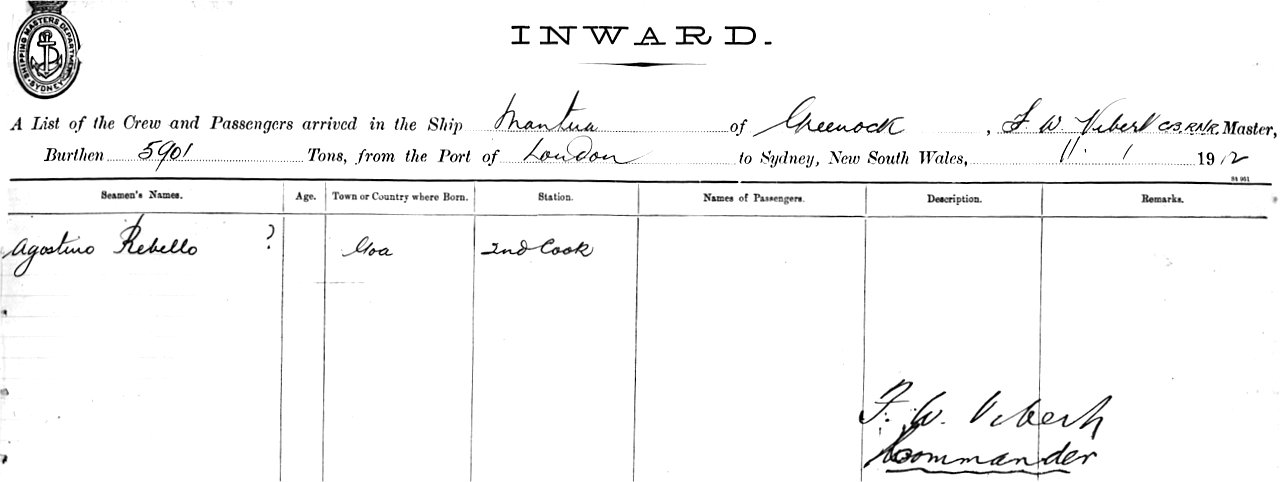 SHIPPING MASTERS DEPARTMENT
SYDNEY
INWARD.
A List of the Crew and Passengers arrived in the Ship Mantua of Greenock, F. W. Vibert C.B. R.N.R. Master,
Burthen 5901 Tons, from the Port of London to Sydney, New South Wales, 11. 1 1912
St 961
Seamen's Names. Age. Town or Country where Born. Station. Names of Passengers. Description. Remarks.
Agostino Rebello ? Goa 2nd Cook
F. W. Vibert
Commander